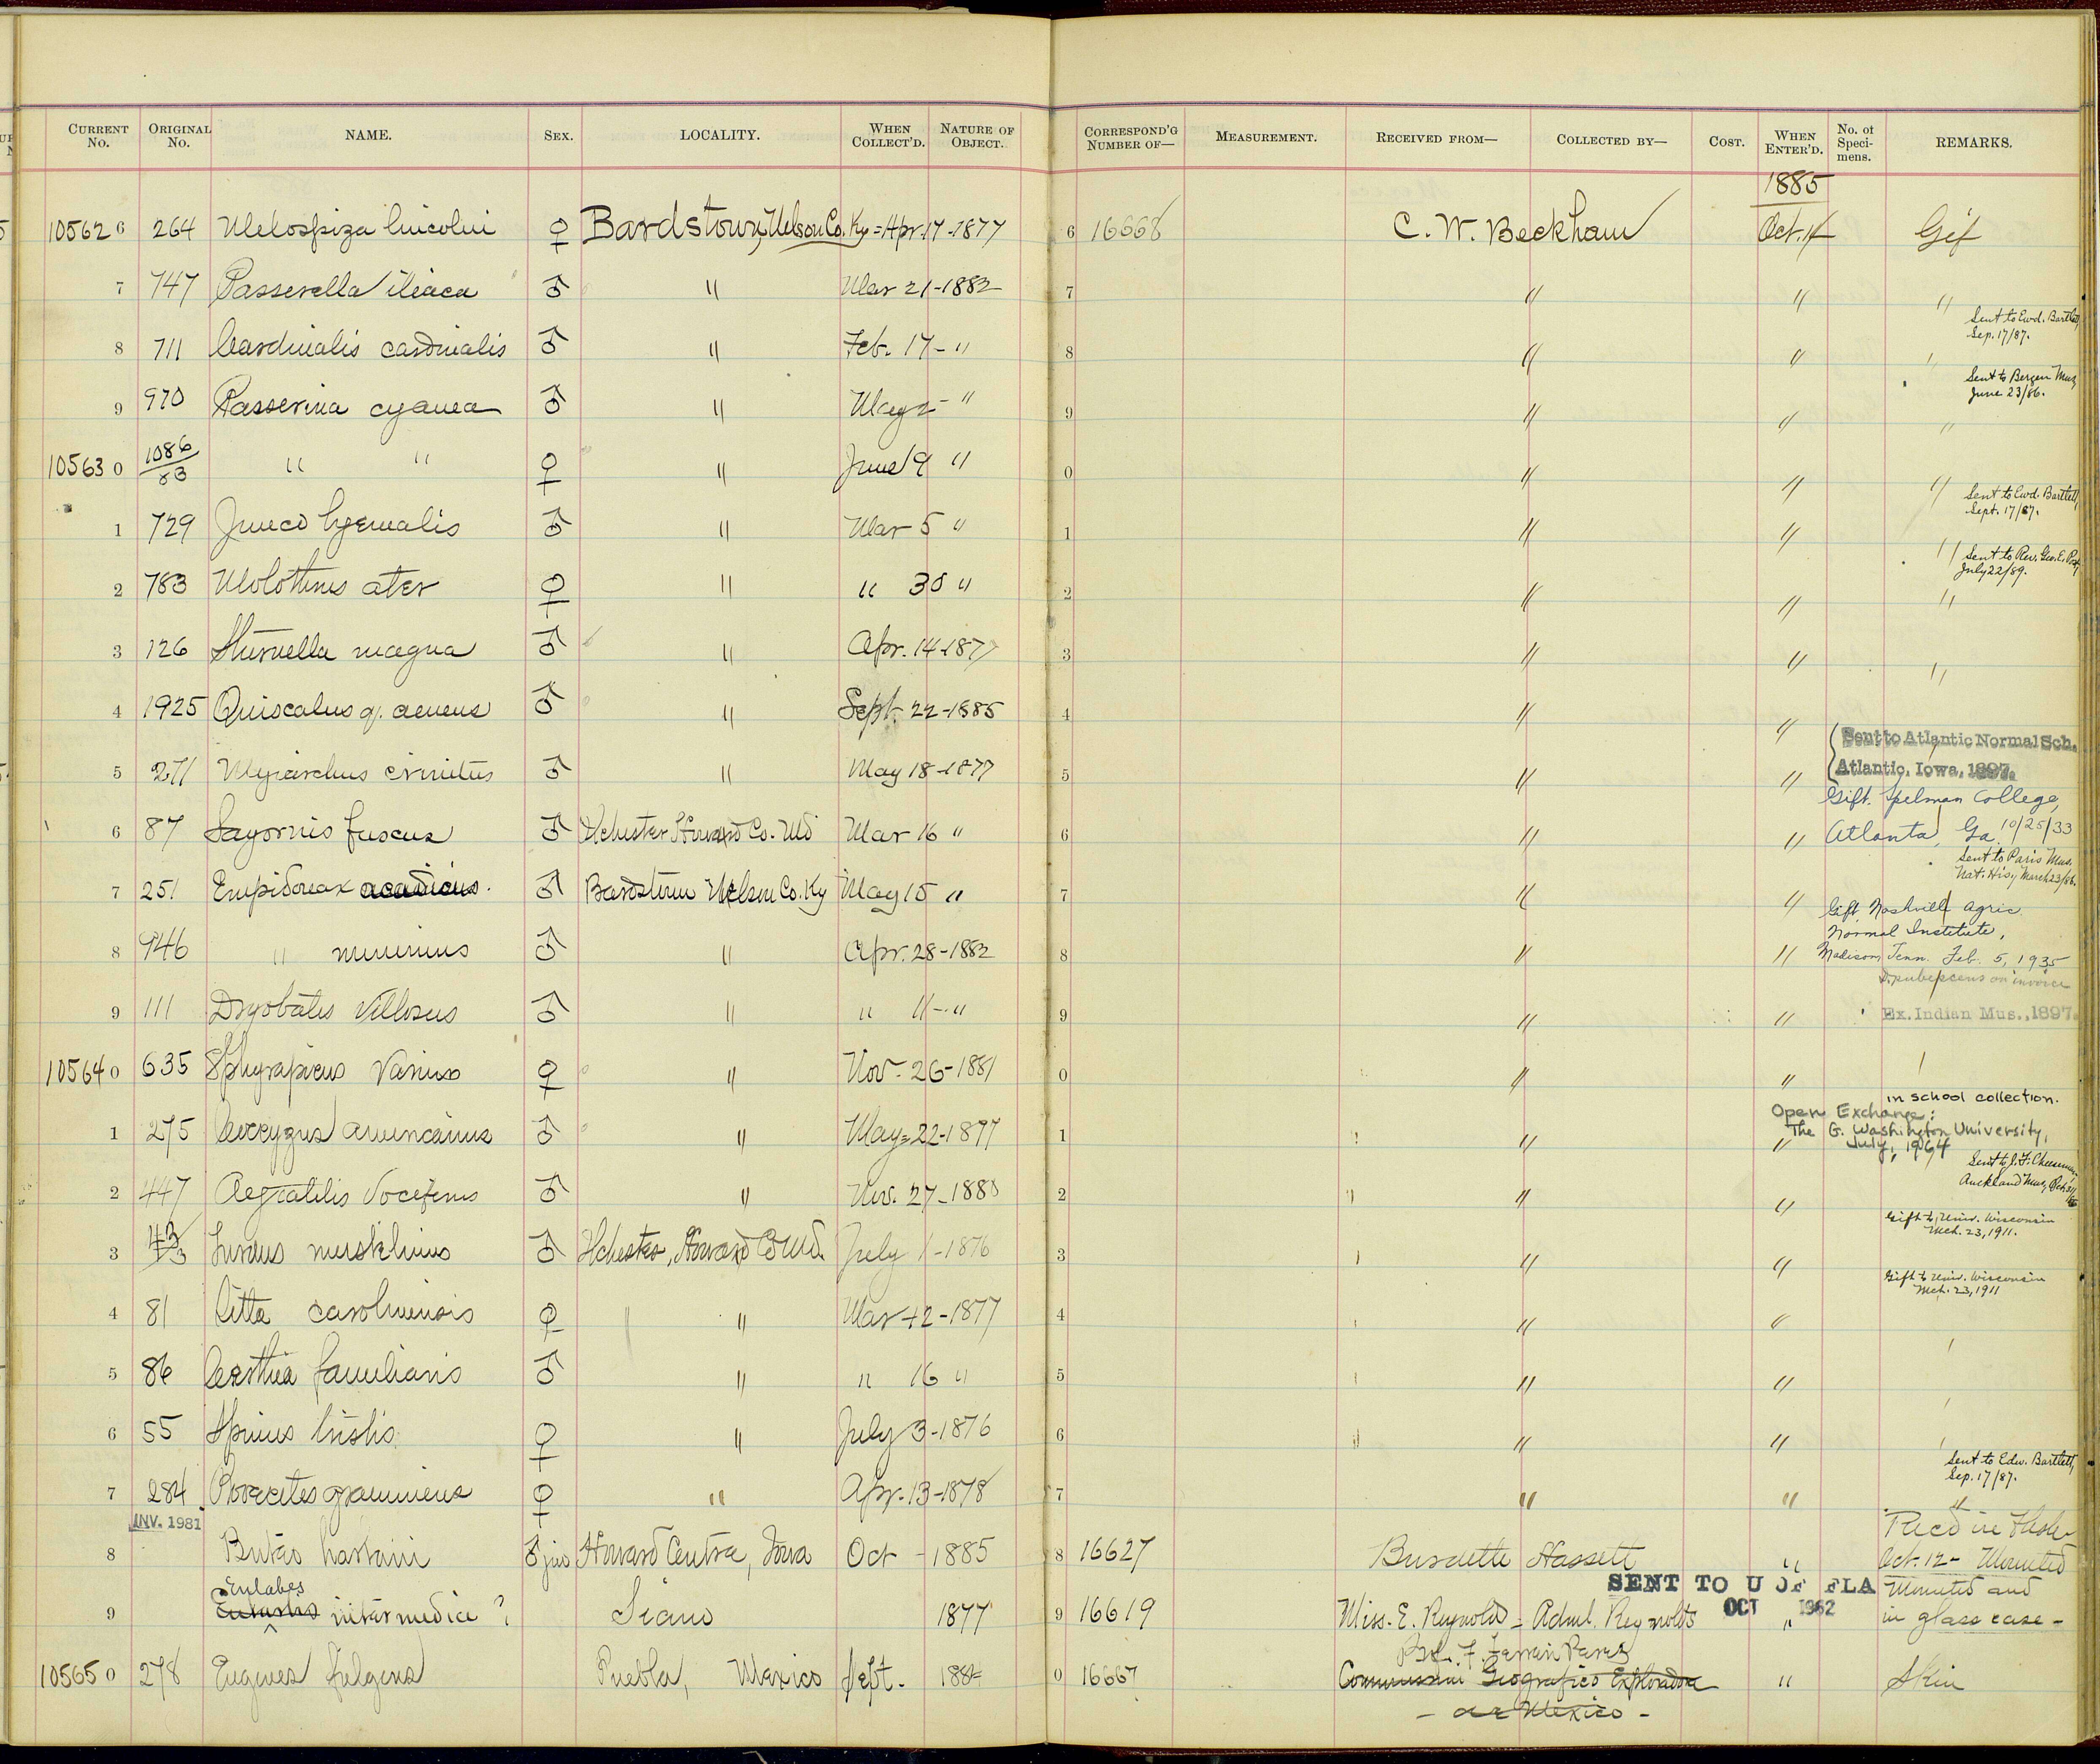 CURRENT No. ORIGINAL No. NAME. SEX. LOCALITY. WHEN COLLECT'D. NATURE OF OBJECT. CORRESPOND'G NUMBER OF— MEASUREMENT. RECEIVED FROM— COLLECTED BY— COST. WHEN ENTER'D. No. of Speci-mens. REMARKS.
1885
10562 6 264 Melospiza lincolni ♀ Bardstown, Nelson Co. Ky = Apr. 17-1877 6 16668 C. W. Beckham Oct. 14 Gif
7 747 Passerella iliaca ♂ " Mar 21-1882 7 " " "
Sent to Ewd. Bartlett, Sep. 17/87.
8 711 Cardinalis cardinalis ♂ " Feb. 17- " 8 " "
Sent to Bergen Mus, June 23/86.
9 970 Passerina cyanea ♂ " May 2- " 9 " " "
10563 0 1086/83 " " ♀ " June 9 " 0 " " "
Sent to Ewd. Bartlett, Sept. 17/87.
1 729 Junco hyemalis ♂ " Mar 5 " 1 " " "
Sent to Rev. Geo. E. July 22/89.
2 783 Molothrus ater ♀ " " 30 " 2 " " "
3 126 Sturnella magna ♂ " Apr. 14-1877 3 " " "
4 1925 Quiscalus q. aeneus ♂ " Sept. 22-1885 4 " "
Sent to Atlantic Normal Sch.
Atlantic, Iowa, 1897.
5 271 Myiarchus crinitus ♂ " May 18-1877 5 " "
Gift. Spelman College,
6 87 Sayornis fuscus ♂ Ilchester Howard Co. Md Mar 16 " 6 " " Atlanta, Ga. 10/25/33
Sent to Paris Mus. Nat. Hisy March 23/86.
7 251 Empidonax acadicus. ♂ Bardstown Nelson Co. Ky May 15 " 7 " "
Gift Nashville Agric.
Normal Institute,
8 946 " minimus ♂ " Apr. 28-1882 8 " " Madison, Tenn. Feb. 5, 1935
D. pubescens on invoice
9 111 Dryobates villosus ♂ " " 11- " 9 " " Ex. Indian Mus., 1897.
10564 0 635 Sphyrapicus varius ♀ " Nov. 26-1881 0 " "
in school collection.
Open Exchange:
The G. Washington University,
July, 1964
1 275 Coccyzus americanus ♂ " May=22-1877 1 " "
Sent to J. F. Cheeseman, Auckland Mus,
2 447 Aegialitis vociferus ♂ " Nov. 27-1880 2 " "
Gift to Univ. Wisconsin Mch. 23, 1911.
3 Turdus mustelinus ♂ Ilchester, Howard Co Md. July 1-1876 3 " "
Gift to Univ. Wisconsin Mch. 23, 1911
4 81 Sitta carolinensis ♀ " Mar 12-1877 4 " "
5 86 Certhia familiaris ♂ " " 16 " 5 " "
6 55 Spinus tristis ♀ " July 3-1876 6 " "
Sent to Edw. Bartlett, Sep. 17/87.
7 284 Poocetes gramineus ♀ " Apr. 13-1878 7 " " "
INV. 1981
8 Buteo harlani ♂ juv Howard Centre, Iowa Oct - 1885 8 16627 Burdette Hassett " Rec'd in flesh Oct. 12- Mounted
SENT TO U OF FLA
OCT 1962
9 Eulabes intermedia ? Siam 1877 9 16619 Miss. E. Reynolds = Adml. Reynolds " Mounted and in glass case -
Prof. F. Ferrari Perez
10565 0 278 Eugenes fulgens Puebla, Mexico Sept. 1884 0 16667 Commission Geografico Exploradora " Skin
- de Mexico -